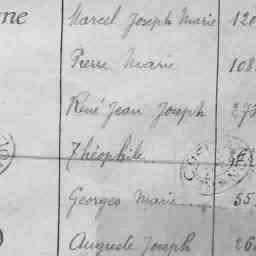 Marcel Joseph Marie 120
Pierre Marie 108
René Jean Joseph 273
Théophile
Georges Marie 55
Auguste Joseph 26